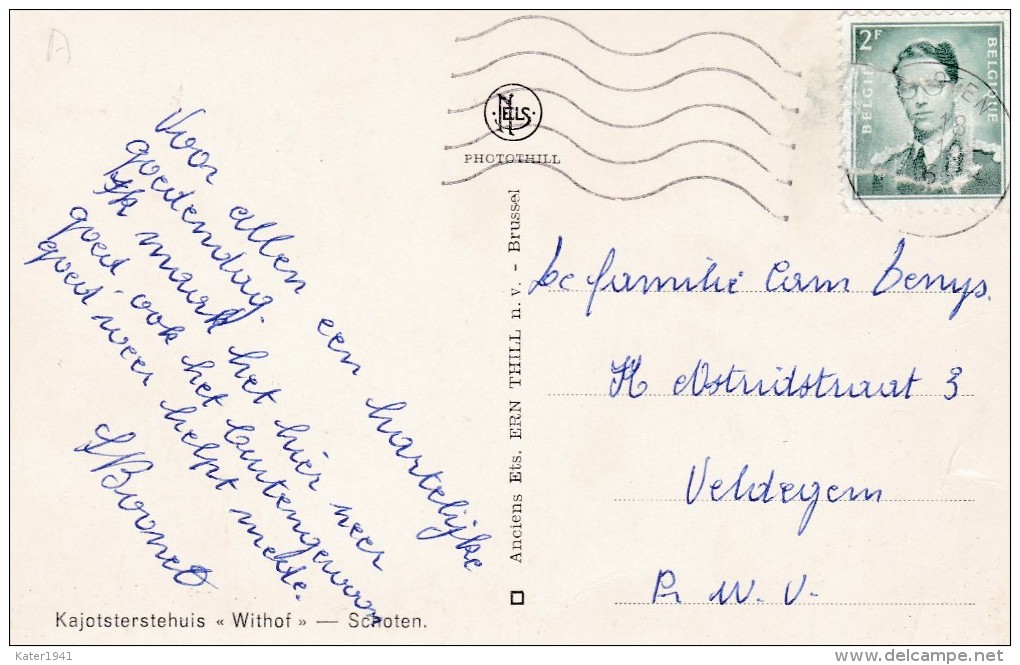 A
Voor allen een hartelijke
goedendag.
Ik maark het hier neer
goed ook het buitengewoon
goed weer helpt mede.
Boonet
Kajotsterstehuis « Withof » — Schoten.
NELS
PHOTOTHILL
Anciens Ets. ERN THILL n. v. - Brussel
2F
BELGIE
BELGIQUE
De familie Cam Denys.
H Astridstraat 3
Veldegem
Pr W. V.
Kater1941
delcampe.net